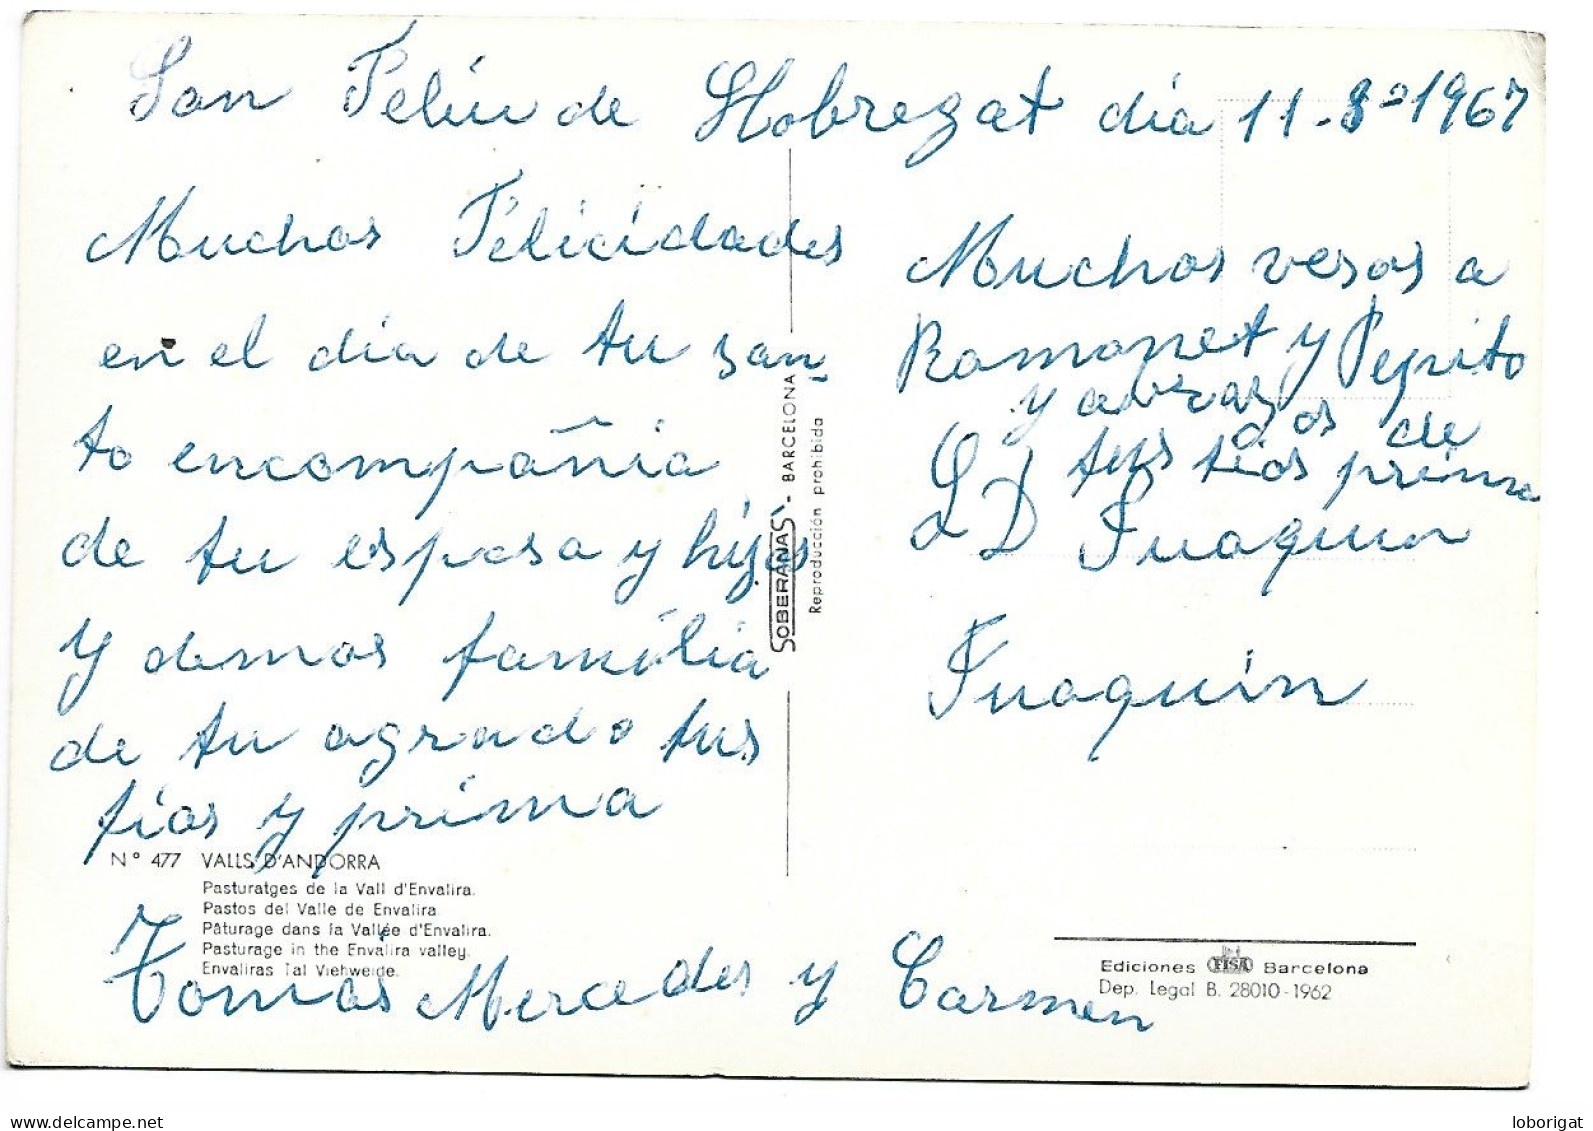 San Feliu de Llobregat dia 11-8-1967
Muchas Felicidades
en el dia de tu san-
to encompañia
de tu esposa y hijos
y demas familia
de tu agrado tus
tios y prima
Tomás Mercedes y Carmen
Muchos vesos a
Ramonet y Pepito
y avrazos de
tus tios prima
L D
a Juaquin
Juaquin
SOBERANAS - BARCELONA
Reproducción prohibida
Nº 477 VALLS D'ANDORRA
Pasturatges de la Vall d'Envalira.
Pastos del Valle de Envalira
Pâturage dans la Vallée d'Envalira.
Pasturage in the Envalira valley.
Envaliras Tal Viehweide.
Ediciones FISA Barcelona
Dep. Legal B. 28010-1962
loborigat